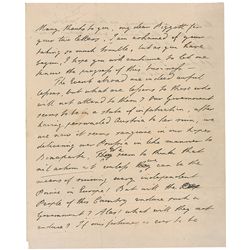 Many thanks to you, my dear for
your two letters. I am ashamed of your
taking so much trouble, but as you have
begun, I hope you will continue to let me
know the progress of this business.
The events abroad are indeed awful
lessons, but what are lessons to those who
will not attend to them? Our Government
seems to be in a state of infatuation, after
having persuaded Austria to her ruin, we
are now it seems sanguine in our hopes
delivering over Prussia in like manner to
Bonaparte. They seem to think that
all whom it can be the
means of ruining every independent
Power in Europe! But will the
People of this Country endure such a
Government? Alas! what will they not
endure? If our fortunes is ever to be